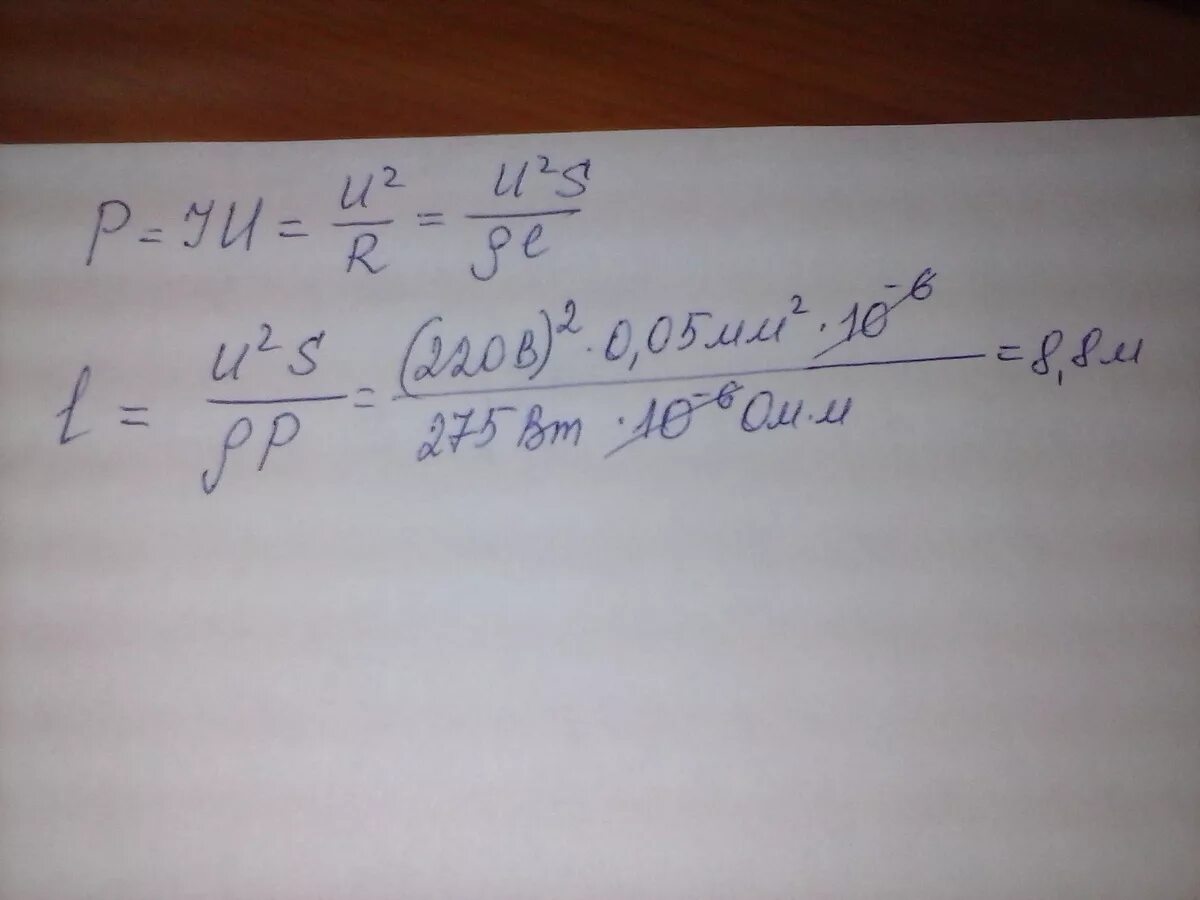 P = IU = U²/R = U²S/ρl
l = U²S/ρP = (220В)² · 0,05мм² · 10⁻⁶ / 275Вт · 10⁻⁶ Ом·м = 8,8м